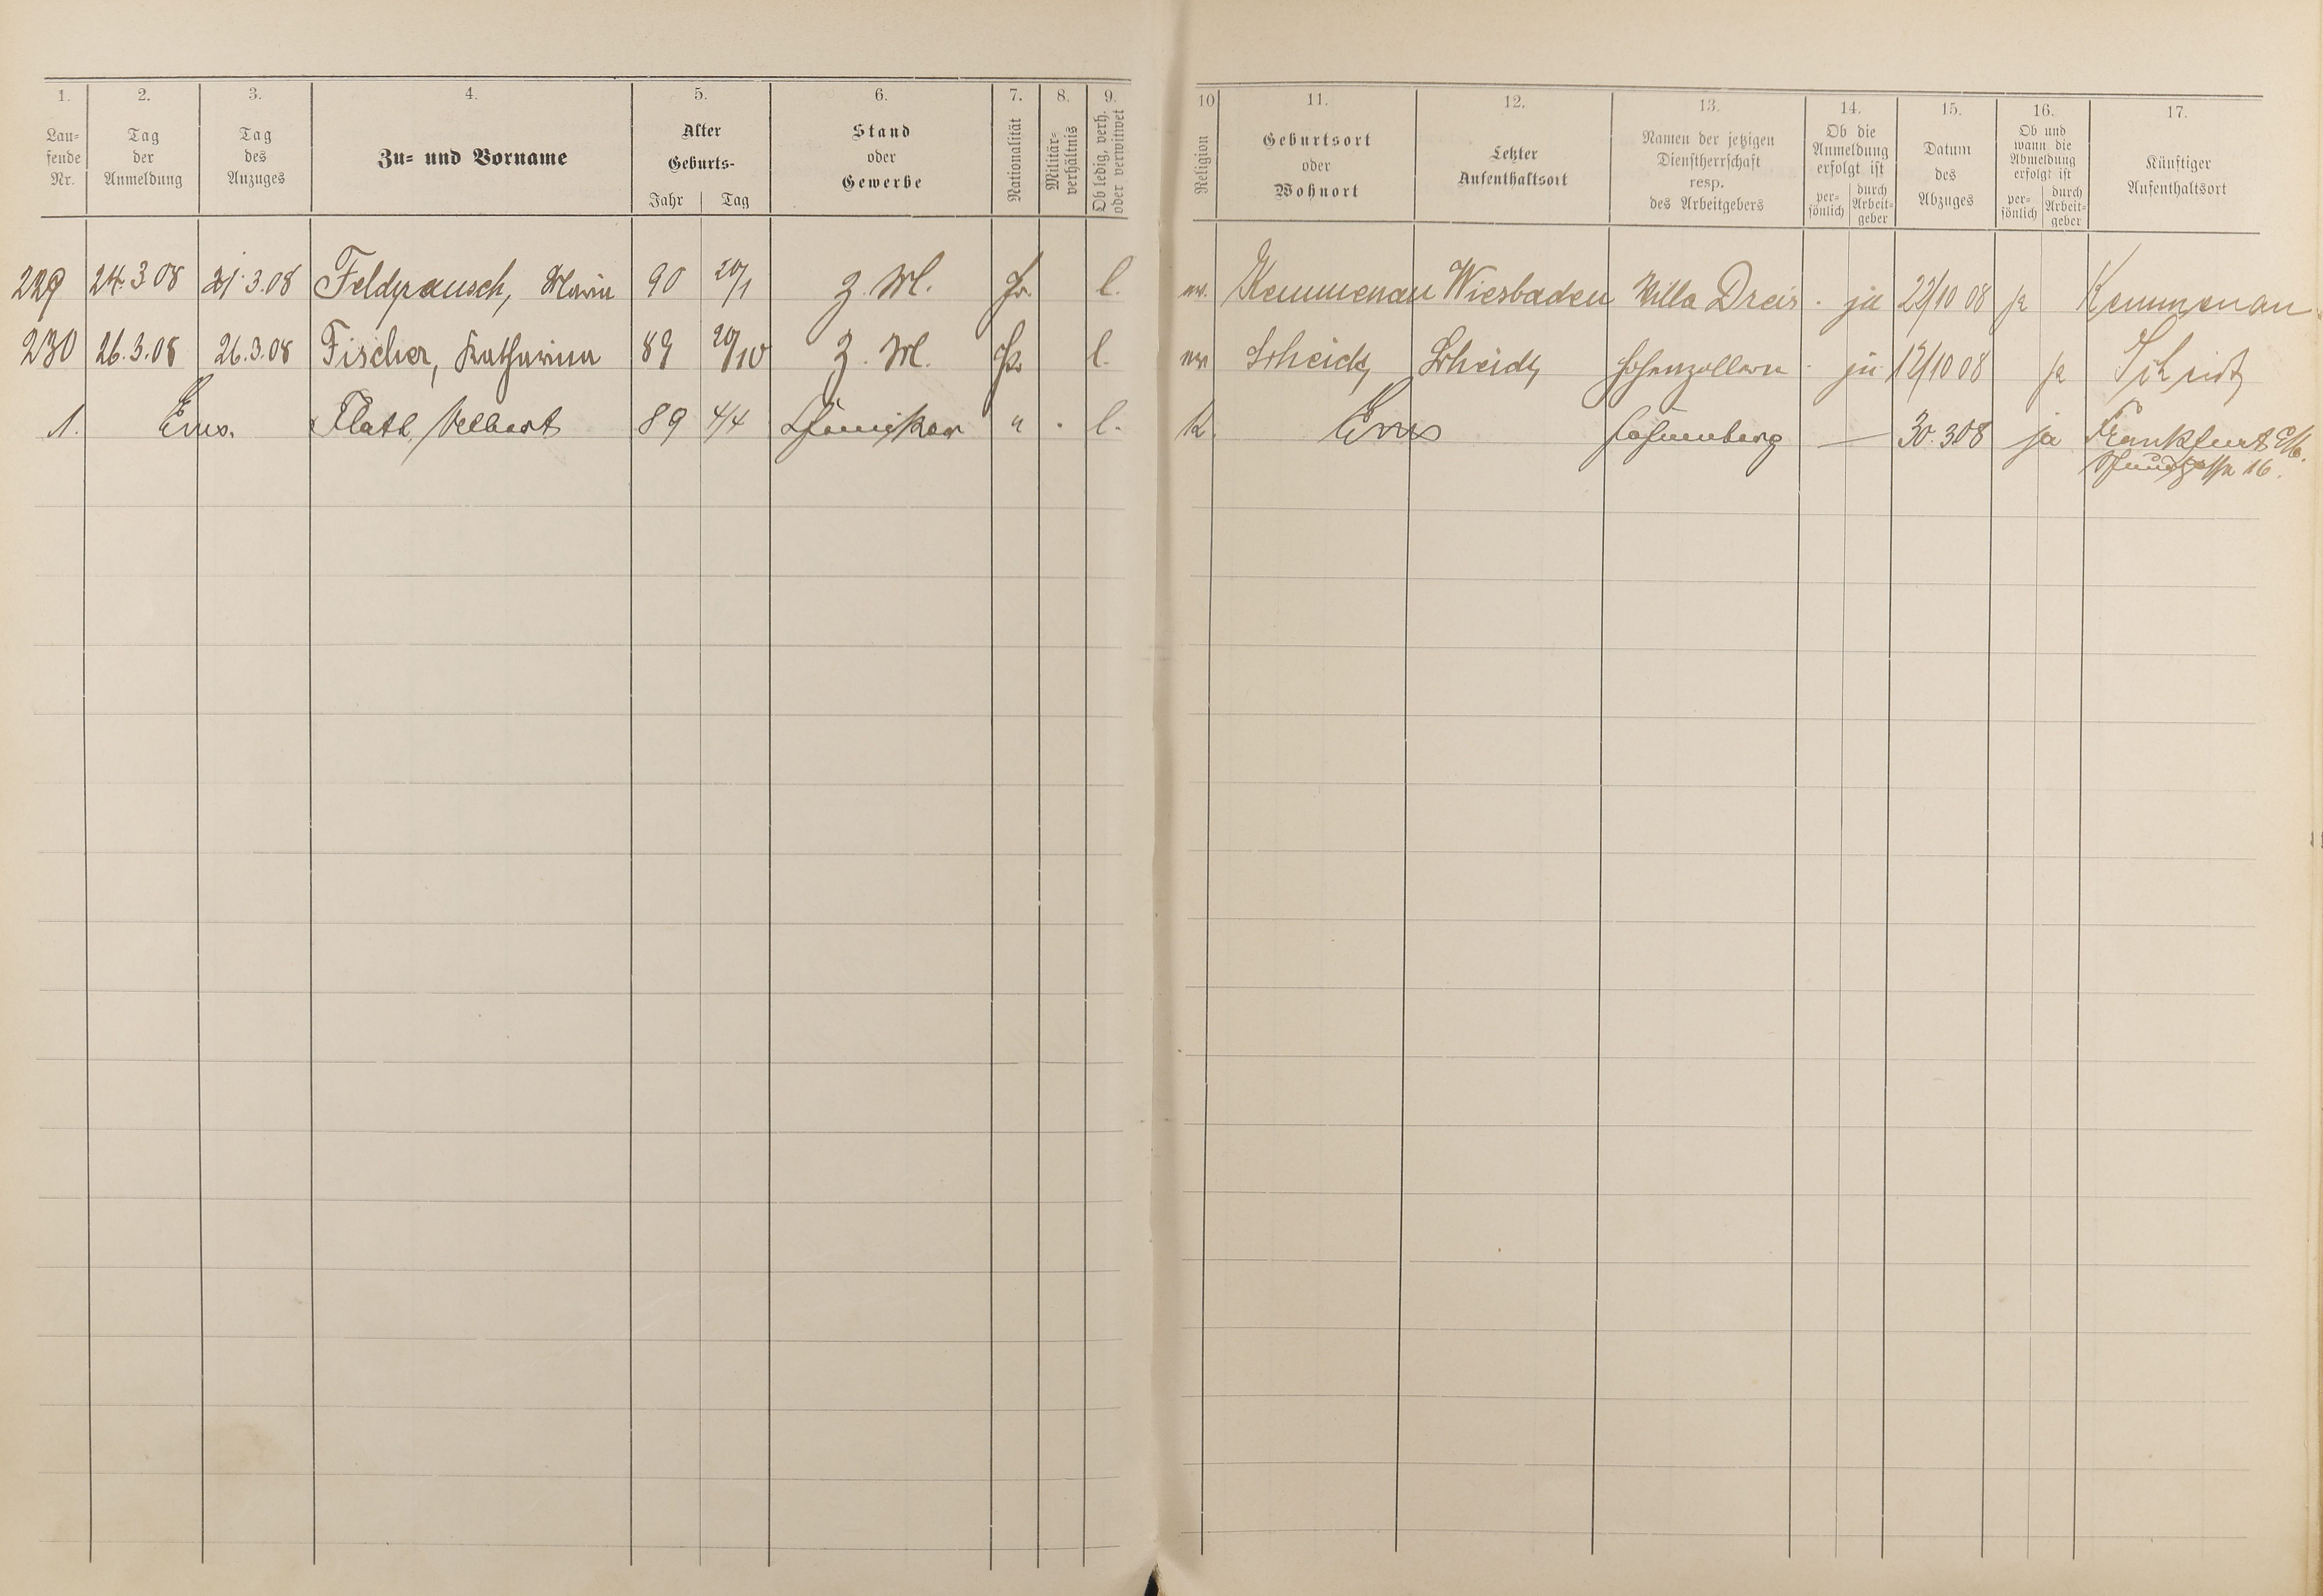 1. 2. 3. 4. 5. 6. 7. 8. 9. 10 11. 12. 13. 14. 15. 16. 17.
Lau-
fende
Nr.
Tag
der
Anmeldung
Tag
des
Anzuges
Zu- und Vorname
Alter
Geburts-
Jahr Tag
Stand
oder
Gewerbe
Nationalität
Militär-
verhältnis
Ob ledig, verh.
oder verwitwet
Religion
Geburtsort
oder
Wohnort
Letzter
Aufenthaltsort
Namen der jetzigen
Dienstherrschaft
resp.
des Arbeitgebers
Ob die
Anmeldung
erfolgt ist
per-
sönlich
durch
Arbeit-
geber
Datum
des
Abzuges
Ob und
wann die
Abmeldung
erfolgt ist
per-
sönlich
durch
Arbeit-
geber
Künftiger
Aufenthaltsort
229 24.3 08 21.3.08 Feldpausch, Maria 90 20/1 Z. M. Pr. l. ev. Kemmenau Wiesbaden Villa Dreis . ja 22/10 08 ja Kemmenau
230 26.3.08 26.3.08 Fischer, Katharina 89 20/10 Z. M. Pr. l. ev. Scheidt Scheidt Hohenzollern . ja 12/10 08 ja Scheidt
1. Ems. Flath 89 4/4 " . l. K. Ems — 30.3.08 ja Frankfurt
16.